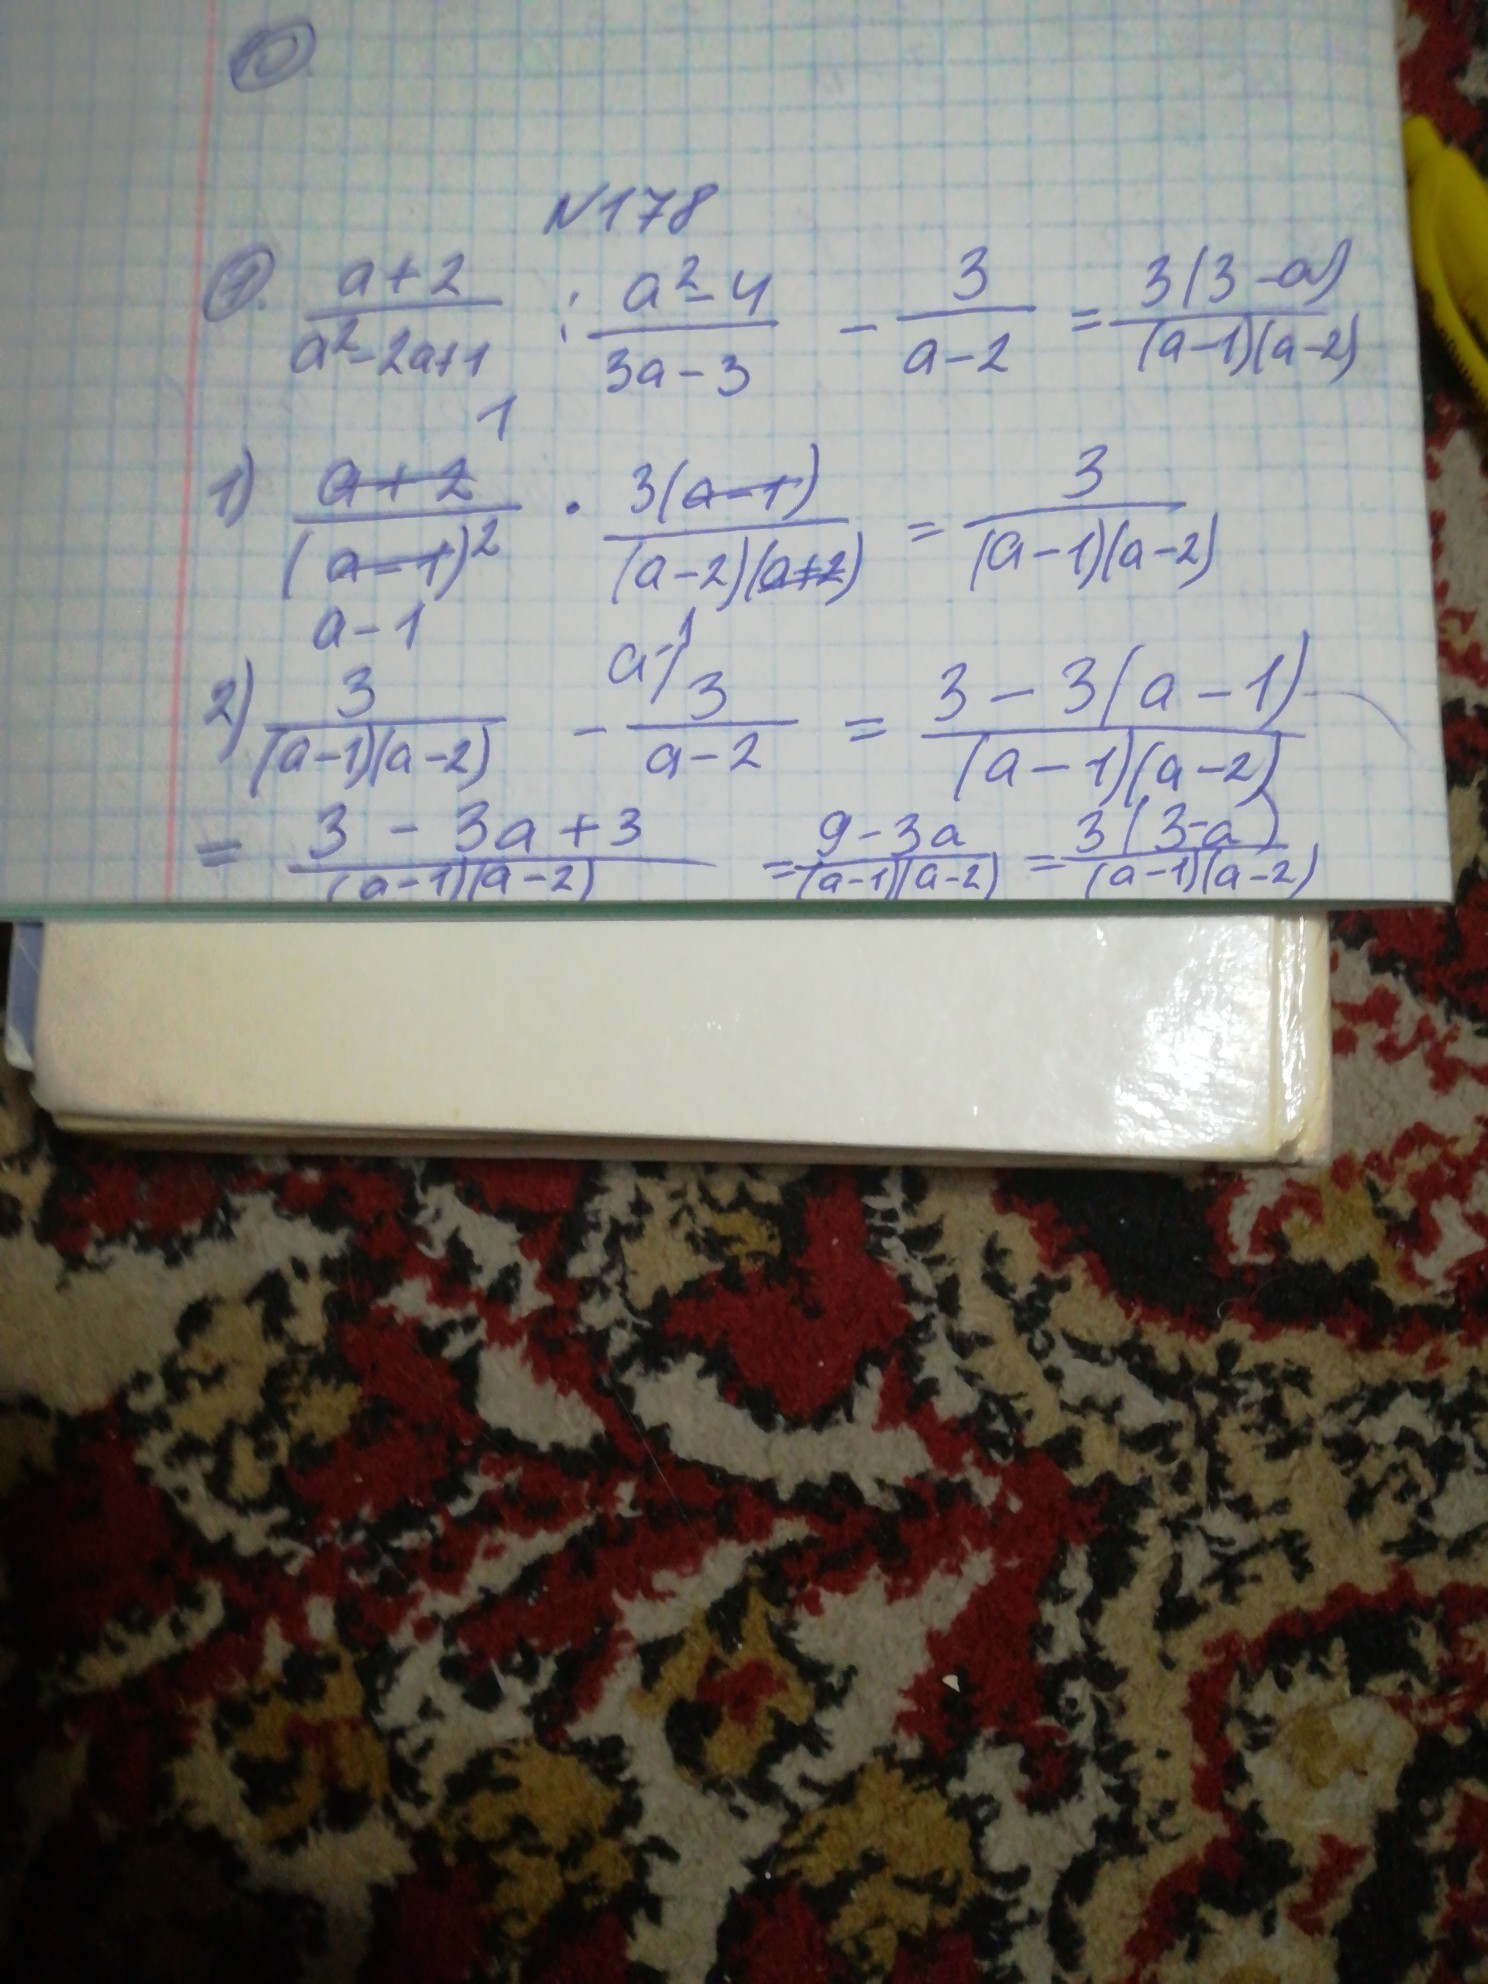 10
N178
9. (a+2)/(a²-2a+1) : (a²-4)/(3a-3) - 3/(a-2) = 3(3-a)/((a-1)(a-2))
1
1) (a+2)/(a-1)² · 3(a-1)/((a-2)(a+2)) = 3/((a-1)(a-2))
a-1 1
2) 3/((a-1)(a-2)) - a-1/ 3/(a-2) = (3-3(a-1))/((a-1)(a-2))
= (3-3a+3)/((a-1)(a-2)) = (9-3a)/((a-1)(a-2)) = 3(3-a)/((a-1)(a-2))